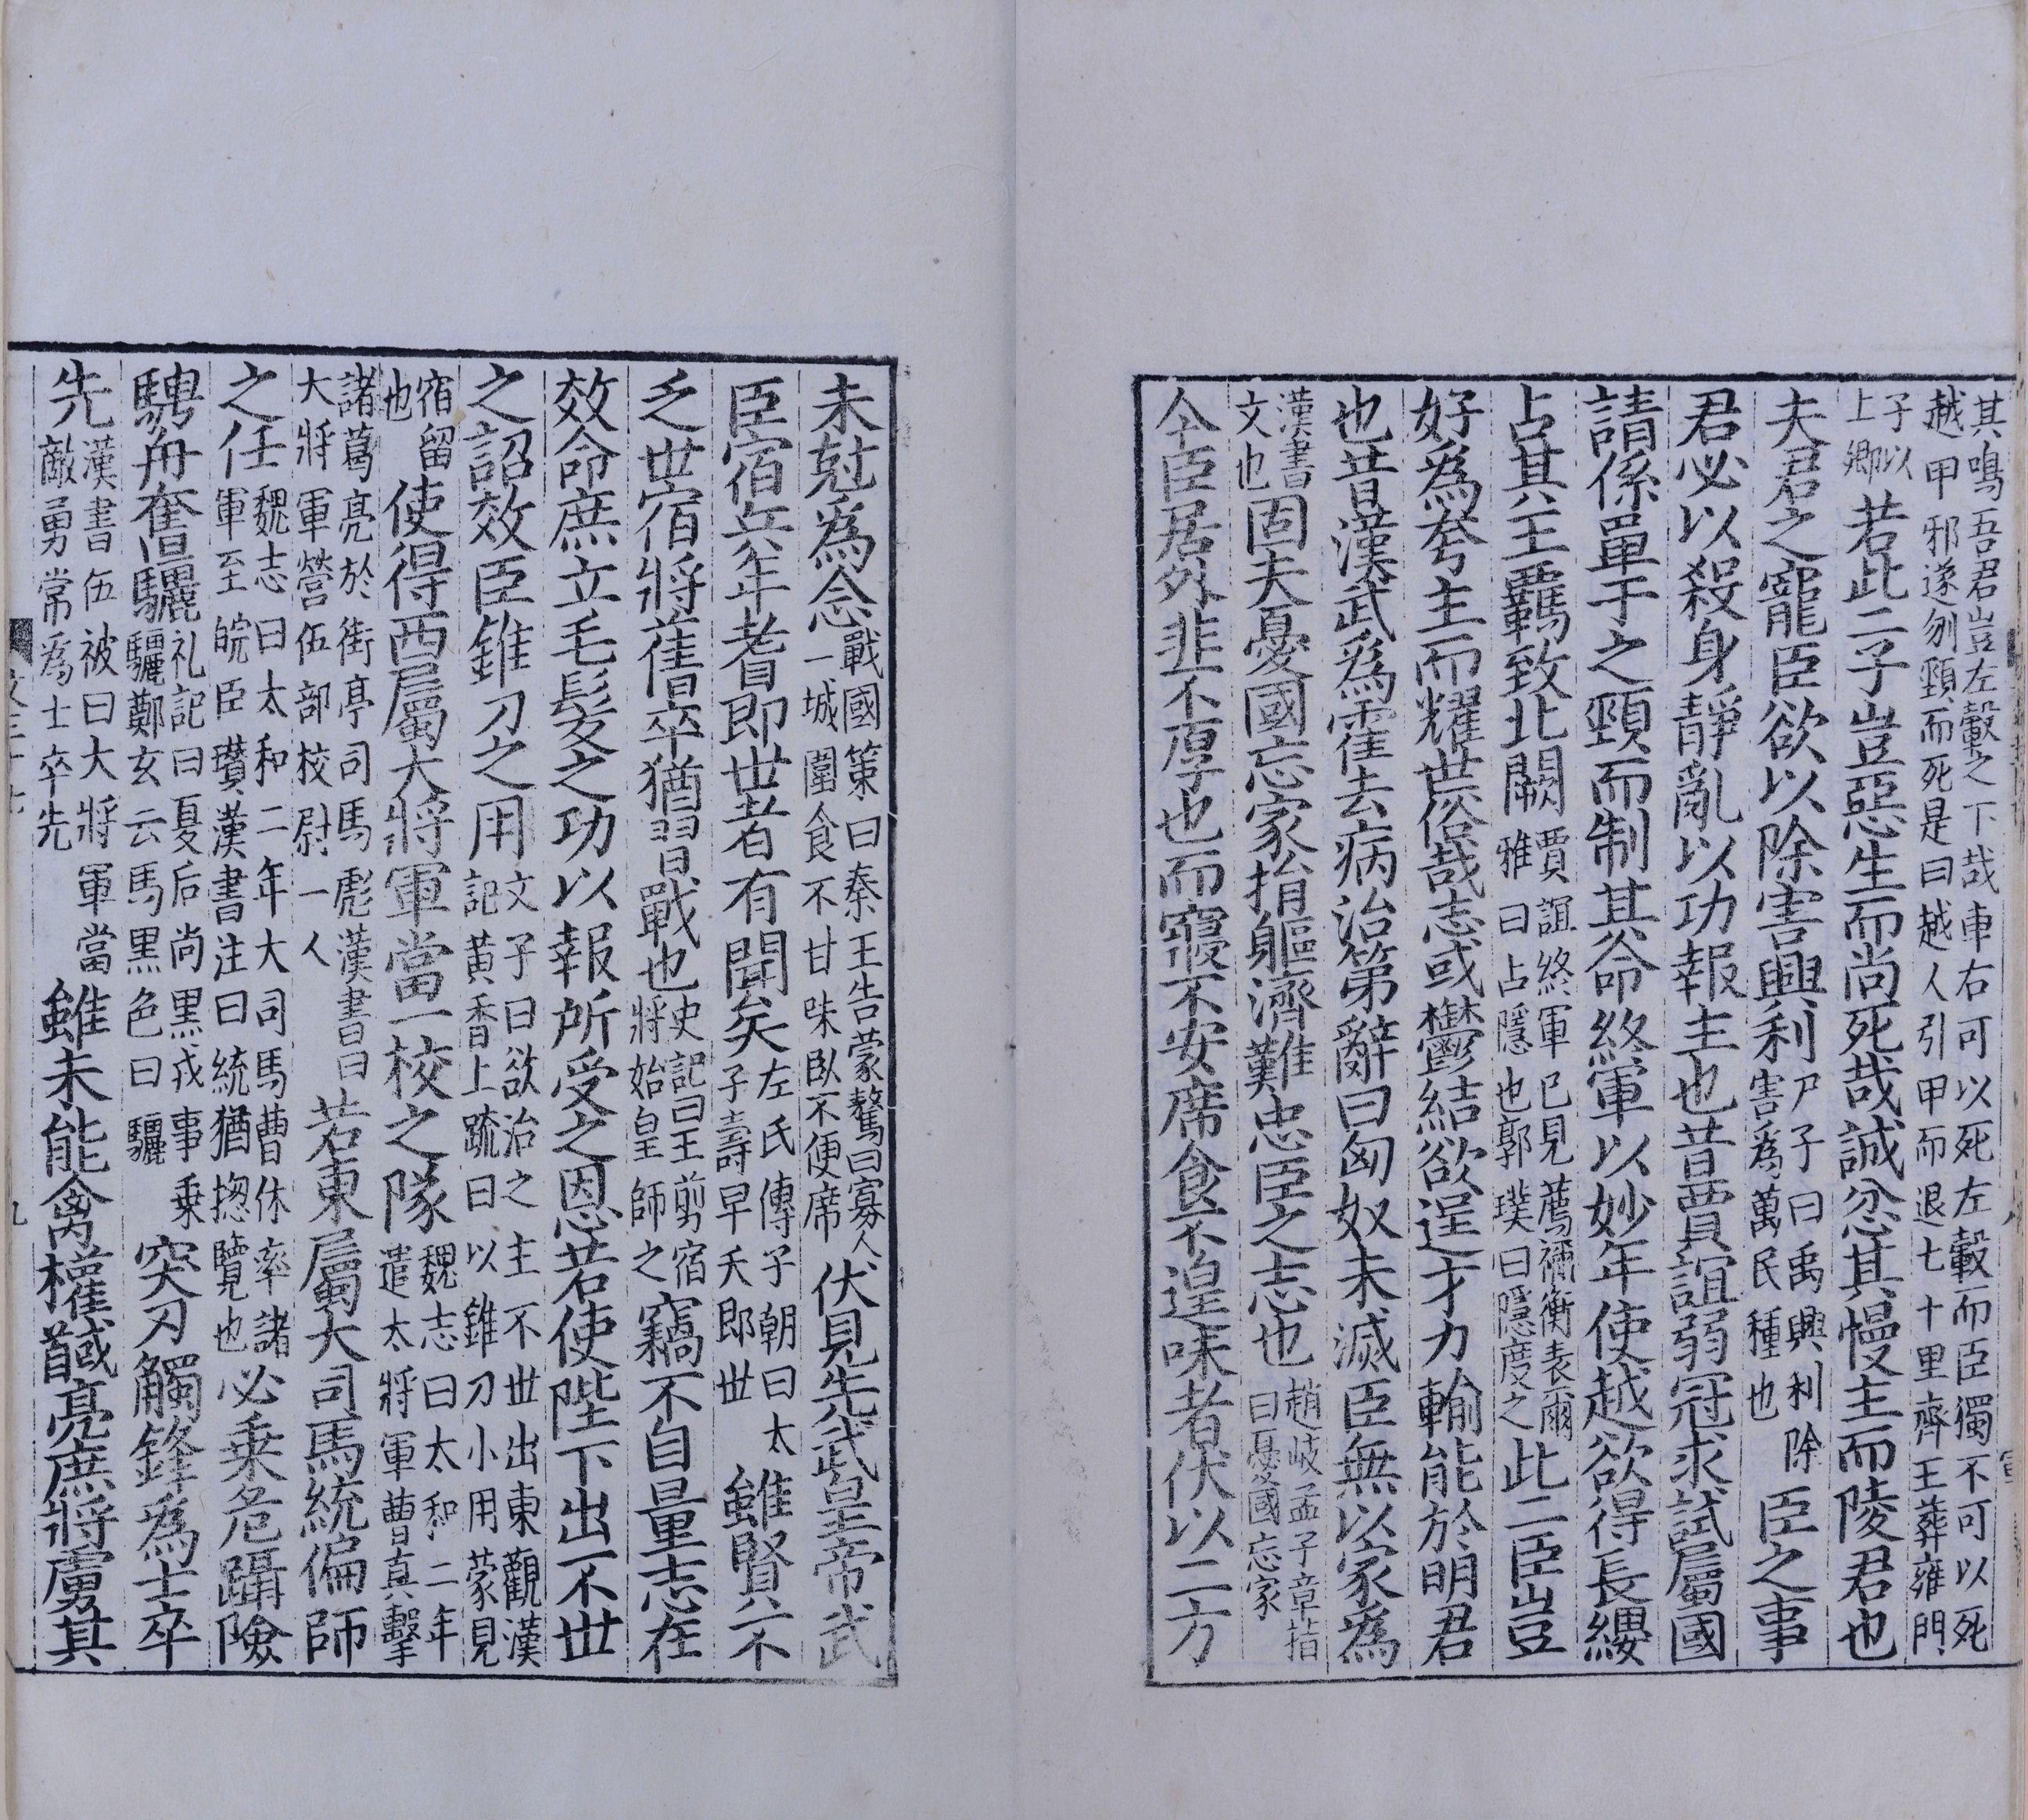 其鳴吾君豈左轂之下哉車右可以死左轂而臣獨不可以死
越甲邪遂刎頸而死是曰越人引甲而退七十里齊王葬雍門
子以上卿若此二子豈惡生而尚死哉誠忿其慢主而陵君也
夫君之寵臣欲以除害興利尸子曰禹興利除害為萬民種也臣之事
君必以殺身靜亂以功報主也昔賈誼弱冠求試屬國
請係單于之頸而制其命終軍以妙年使越欲得長纓
占其王羈致北闕賈誼終軍已見薦禰衡表爾雅曰占隱也郭璞曰隱度之此二臣豈
好為夸主而耀世俗哉志或鬱結欲逞才力輸能於明君
也昔漢武為霍去病治第辭曰匈奴未滅臣無以家為
漢書文也固夫憂國忘家捐軀濟難忠臣之志也趙岐孟子章指曰憂國忘家
今臣居外非不厚也而寢不安席食不遑味者伏以二方
未尅為念戰國策曰秦王告蒙驁曰寡人一城圍食不甘味臥不便席伏見先武皇帝武
臣宿兵年耆即世者有聞矣左氏傳子朝曰太子壽早夭郎世雖賢不
乏世宿將舊卒猶習戰也史記曰王剪宿將始皇師之竊不自量志在
效命庶立毛髮之功以報所受之恩若使陛下出不世
之詔效臣錐刀之用文子曰欲治之主不世出東觀漢記黃香上疏曰以錐刀小用蒙見
宿留也使得西屬大將軍當一校之隊魏志曰太和二年遣太將軍曹真擊
諸葛亮於街亭司馬彪漢書曰大將軍營伍部校尉一人若東屬大司馬統偏師
之任魏志曰太和二年大司馬曹休率諸軍至皖臣瓚漢書注曰統猶揔覽也必乗危躡險
騁舟奮驪礼記曰夏后尚黒戎事乗驪鄭玄云馬黒色曰驪突刃觸鋒為士卒
先漢書伍被曰大將軍當敵勇常為士卒先雖未能禽權馘亮庶將虜其